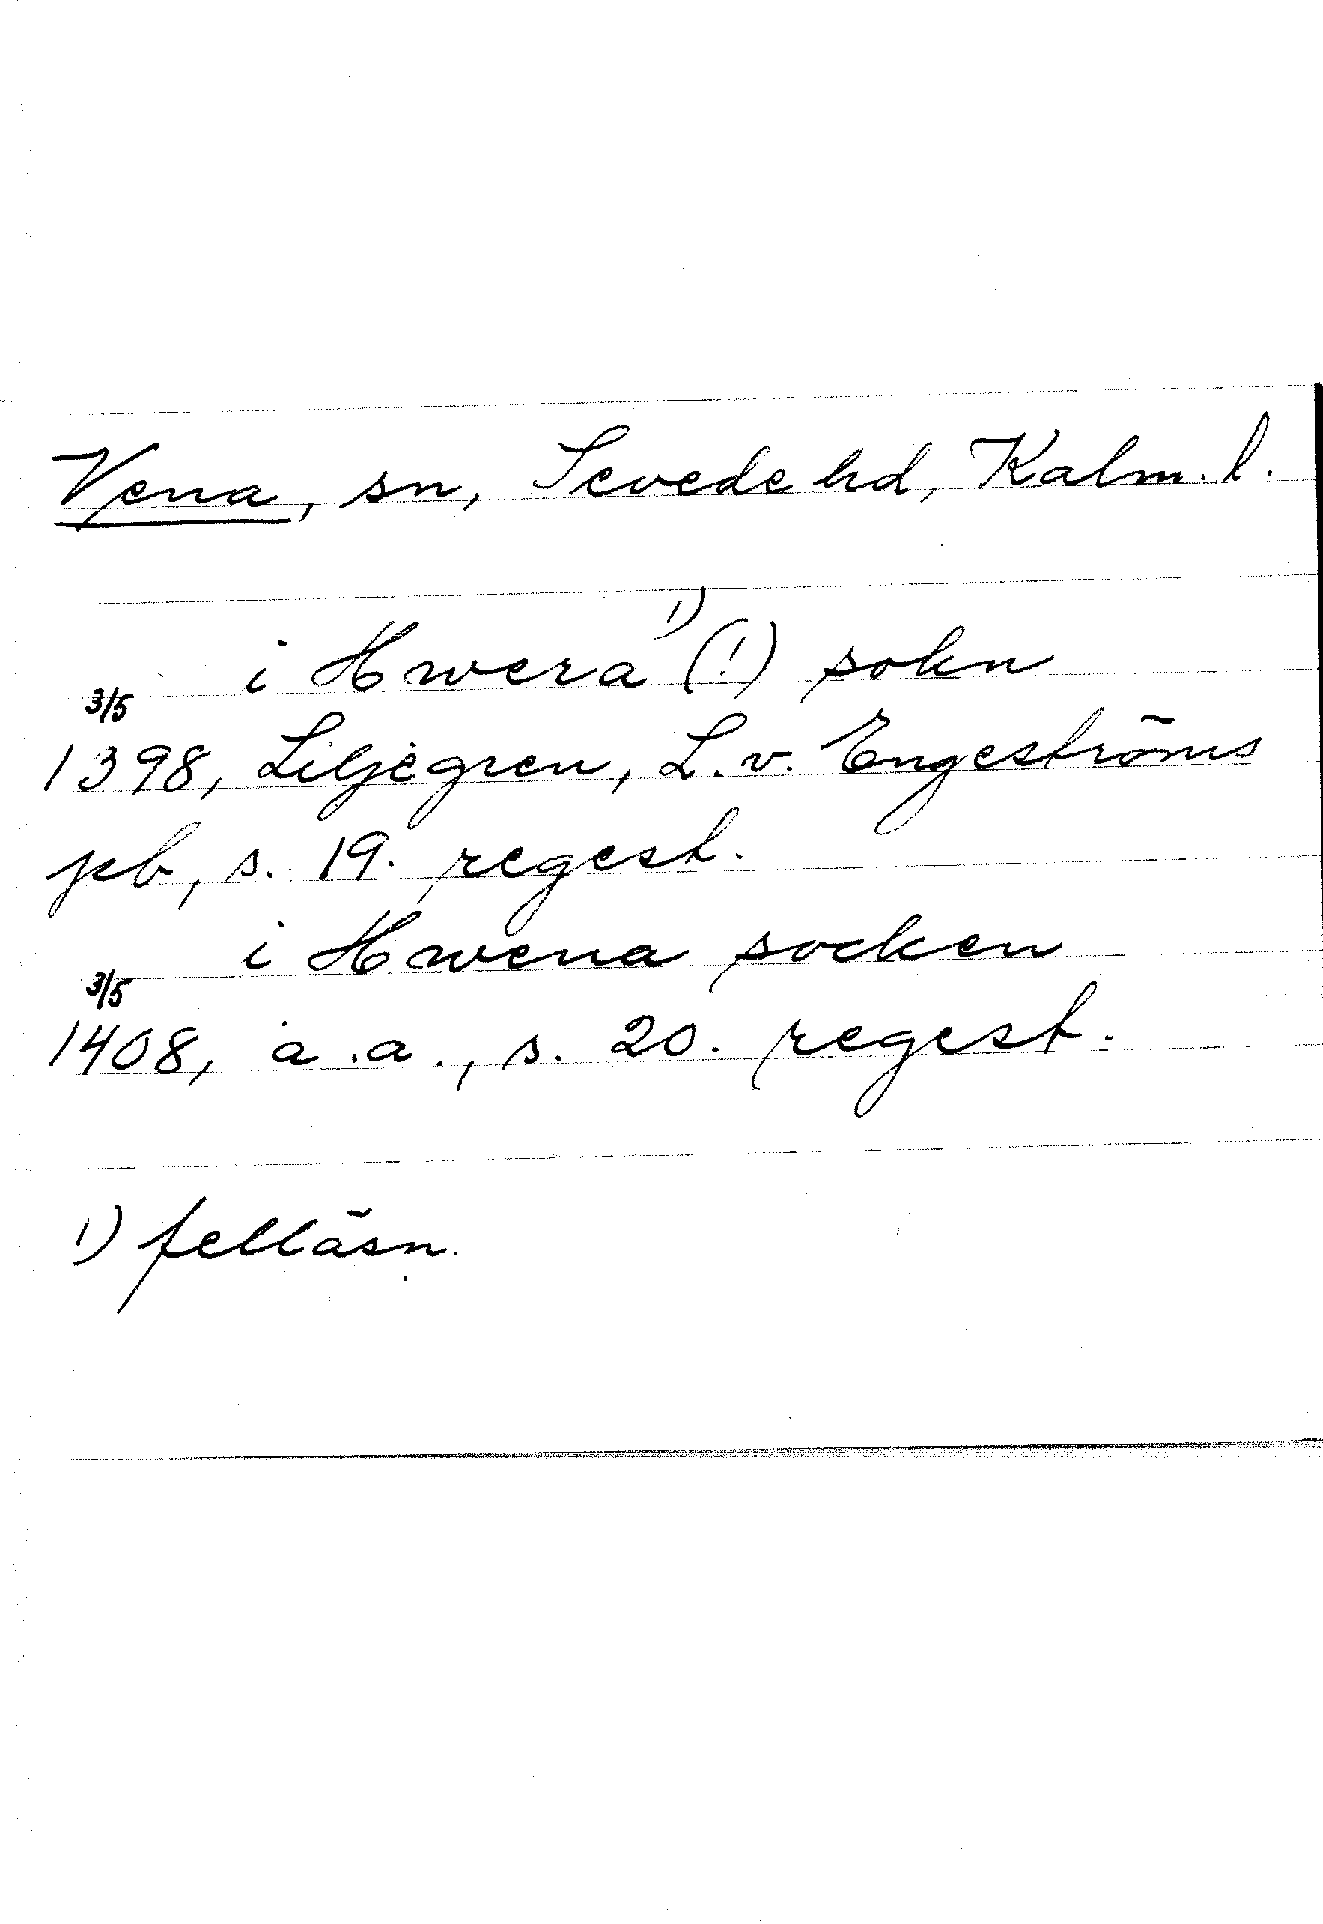 Vena, sn, Sevede hd, Kalm. l.
i Hwera 1) (!) sokn
3/5
1398, Liljegren, L. v. Engeströms
pb, s. 19. regest.
i Hwena socken
3/5
1408, a.a., s. 20. regest.
1) felläsn.